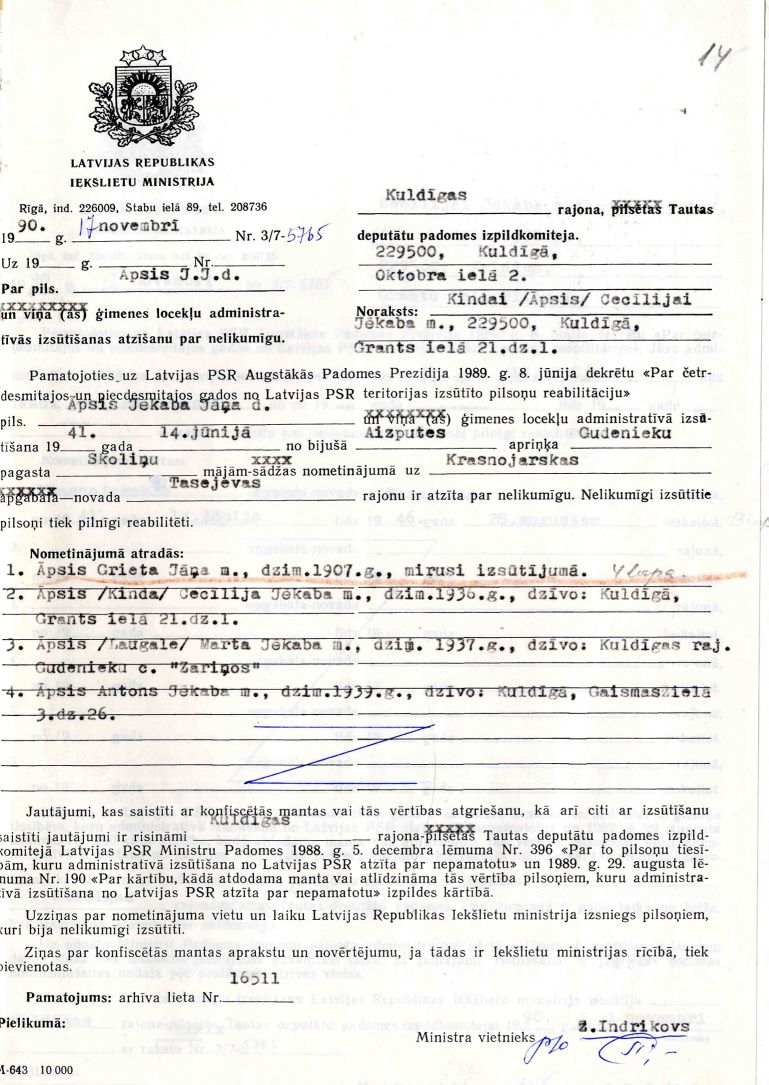 14
LATVIJAS REPUBLIKAS
IEKŠLIETU MINISTRIJA
Rīgā, ind. 226009, Stabu ielā 89, tel. 208736
1990. g. 17 novembrī Nr. 3/7-5765
Uz 19 g. Nr.
Par pils. Āpsis J.J.d.
xxxxxxxxx
un viņa (ās) ģimenes locekļu administra-
tīvās izsūtīšanas atzīšanu par nelikumīgu.
Kuldīgas rajona, pilsētas Tautas
deputātu padomes izpildkomiteja.
229500, Kuldīgā,
Oktobra ielā 2.
Noraksts: Kindai /Āpsis/ Cecīlijai
Jēkaba m., 229500, Kuldīgā,
Grants ielā 21.dz.1.
Pamatojoties uz Latvijas PSR Augstākās Padomes Prezidija 1989. g. 8. jūnija dekrētu «Par četr-
desmitajos un piecdesmitajos gados no Latvijas PSR teritorijas izsūtīto pilsoņu reabilitāciju»
pils. Āpsis Jēkaba Jāņa d. un viņa (ās) ģimenes locekļu administratīvā izsū-
tīšana 1941. gada 14.jūnijā no bijušā Aizputes apriņķa Gudenieku
pagasta Skoliņu xxxx mājām-sādžas nometinājumā uz Krasnojarskas
apgabala—novada Tasejevas rajonu ir atzīta par nelikumīgu. Nelikumīgi izsūtītie
pilsoņi tiek pilnīgi reabilitēti.
Nometinājumā atradās:
1. Āpsis Grieta Jāņa m., dzim.1907.g., mirusi izsūtījumā.
2. Āpsis /Kinda/ Cecīlija Jēkaba m., dzim.1936.g., dzīvo: Kuldīgā,
Grants ielā 21.dz.1.
3. Āpsis /Laugale/ Marta Jēkaba m., dzim. 1937.g., dzīvo: Kuldīgas raj.
Gudenieku c. "Zariņos"
4. Āpsis Antons Jēkaba m., dzim.1939.g., dzīvo: Kuldīgā, Gaismasielā
3.dz.26.
Jautājumi, kas saistīti ar konfiscētās mantas vai tās vērtības atgriešanu, kā arī citi ar izsūtīšanu
saistīti jautājumi ir risināmi Kuldīgas rajona-pilsētas Tautas deputātu padomes izpild-
komitejā Latvijas PSR Ministru Padomes 1988. g. 5. decembra lēmuma Nr. 396 «Par to pilsoņu tiesī-
bām, kuru administratīvā izsūtīšana no Latvijas PSR atzīta par nepamatotu» un 1989. g. 29. augusta lē-
muma Nr. 190 «Par kārtību, kādā atdodama manta vai atlīdzināma tās vērtība pilsoņiem, kuru administra-
tīvā izsūtīšana no Latvijas PSR atzīta par nepamatotu» izpildes kārtībā.
Uzziņas par nometinājuma vietu un laiku Latvijas Republikas Iekšlietu ministrija izsniegs pilsoņiem,
kuri bija nelikumīgi izsūtīti.
Ziņas par konfiscētās mantas aprakstu un novērtējumu, ja tādas ir Iekšlietu ministrijas rīcībā, tiek
pievienotas.
Pamatojums: arhīva lieta Nr. 16511
Pielikumā:
Ministra vietnieks Z.Indrikovs
M-643 10 000